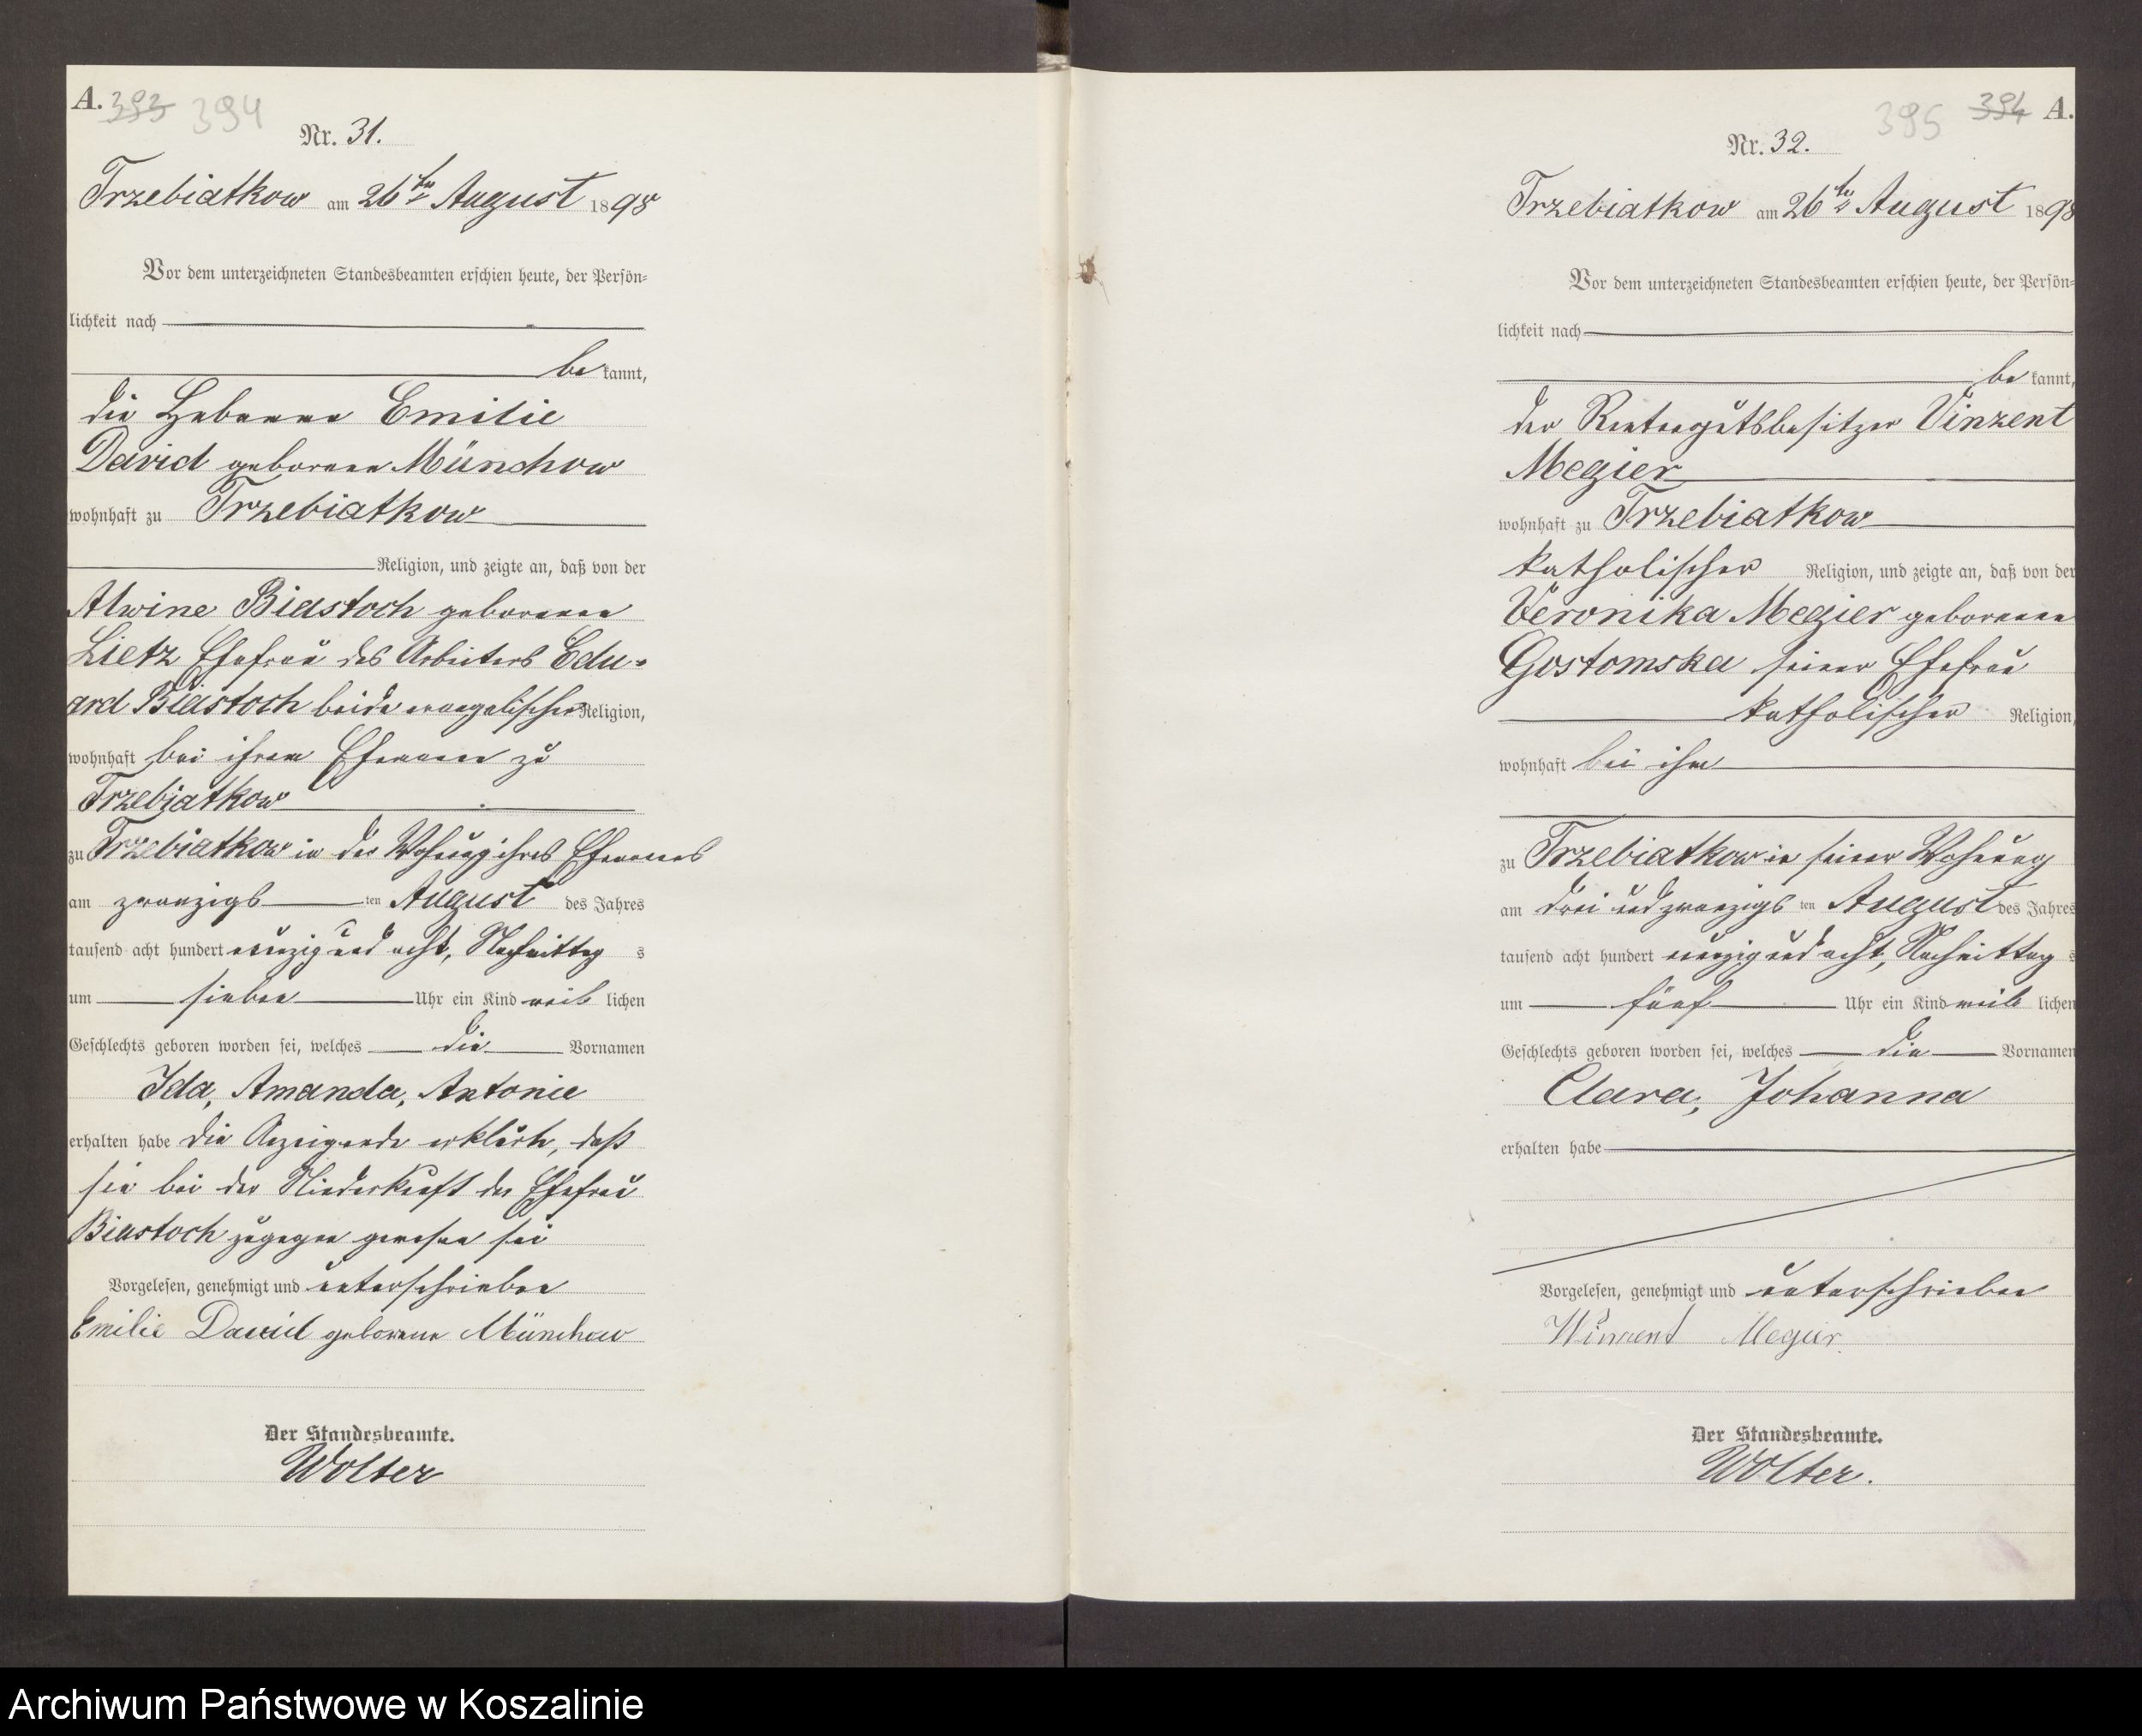 A. 393 394
Nr. 31.
Trzebiatkow am 26ten August 1898
Vor dem unterzeichneten Standesbeamten erschien heute, der Persön-
lichkeit nach
be kannt,
die Hebamme Emilie
David geborene Münchow
wohnhaft zu Trzebiatkow
Religion, und zeigte an, daß von der
Alwine Biastoch geborenen
Lietz Ehefrau des Arbeiters Edu-
ard Biastoch beide evangelischer Religion,
wohnhaft bei ihrem Ehemann zu
Trzebiatkow
zu Trzebiatkow in der Wohnung ihres Ehemannes
am zwanzigs ten August des Jahres
tausend acht hundert neunzig und acht, Nachmittag s
um sieben Uhr ein Kind weib lichen
Geschlechts geboren worden sei, welches die Vornamen
Ida, Amanda, Antonie
erhalten habe die Anzeigende erklärte, daß
sie bei der Niederkunft der Ehefrau
Biastoch zugegen gewesen sei
Vorgelesen, genehmigt und unterschrieben
Emilie David geborene Münchow
Der Standesbeamte.
Wolter
395 394 A.
Nr. 32.
Trzebiatkow am 26ten August 1898
Vor dem unterzeichneten Standesbeamten erschien heute, der Persön-
lichkeit nach
be kannt,
der Rentengutsbesitzer Vinzent
Megier
wohnhaft zu Trzebiatkow
katholischer Religion, und zeigte an, daß von der
Veronika Megier geborenen
Gostomska seiner Ehefrau
katholischer Religion,
wohnhaft bei ihm
zu Trzebiatkow in seiner Wohnung
am drei und zwanzigs ten August des Jahres
tausend acht hundert neunzig und acht, Nachmittag s
um fünf Uhr ein Kind weib lichen
Geschlechts geboren worden sei, welches die Vornamen
Clara, Johanna
erhalten habe
Vorgelesen, genehmigt und unterschrieben
Winzent Megier.
Der Standesbeamte.
Wolter.
Archiwum Państwowe w Koszalinie